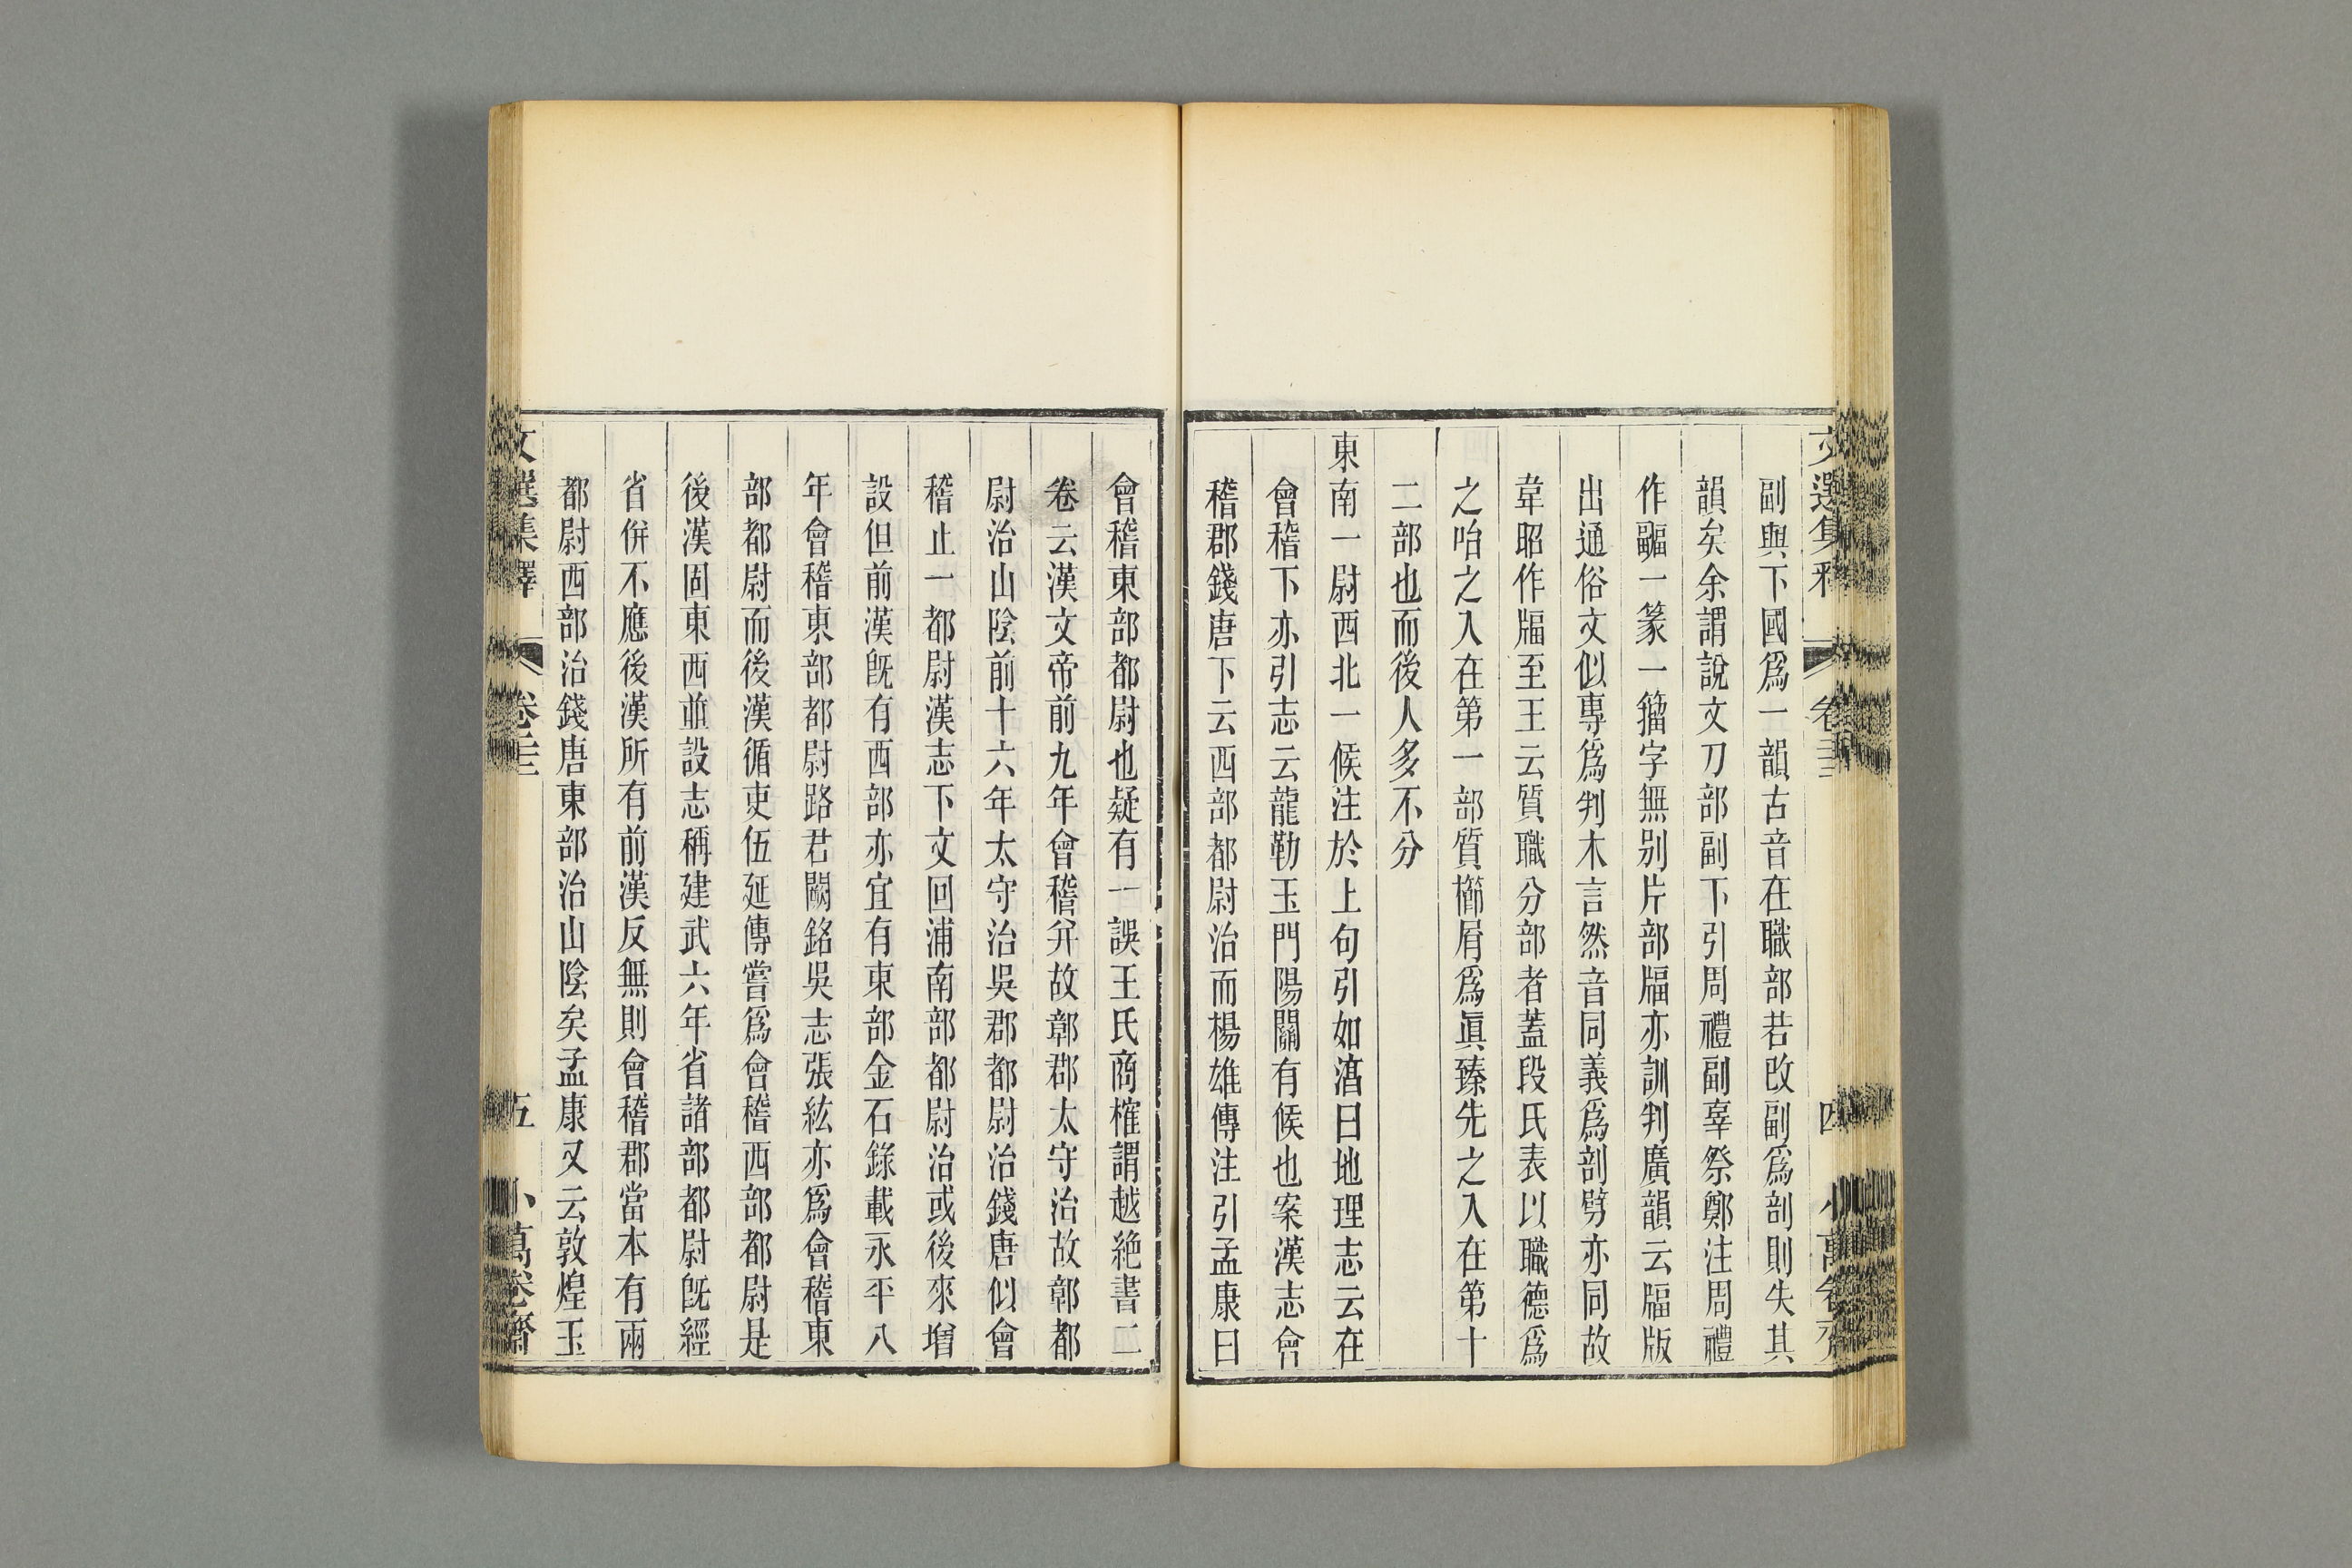 文選集釋 卷二十三 四 小萬卷齋
副與下國爲一韻古音在職部若改副爲剖則失其
韻矣余謂說文刀部副下引周禮副辜祭鄭注周禮
作疈一篆一籀字無别片部牑亦訓判廣韻云牑版
出通俗文似專爲判木言然音同義爲剖劈亦同故
韋昭作牑至王云質職分部者蓋段氏表以職德爲
之咍之入在第一部質櫛屑爲眞臻先之入在第十
二部也而後人多不分
東南一尉西北一候注於上句引如湻曰地理志云在
會稽下亦引志云龍勒玉門陽關有候也案漢志會
稽郡錢唐下云西部都尉治而楊雄傳注引孟康曰
會稽東部都尉也疑有一誤王氏商榷謂越絶書二
卷云漢文帝前九年會稽并故鄣郡太守治故鄣都
尉治山陰前十六年太守治吳郡都尉治錢唐似會
稽止一都尉漢志下文回浦南部都尉治或後來增
設但前漢旣有西部亦宜有東部金石錄載永平八
年會稽東部都尉路君闕銘吳志張紘亦爲會稽東
部都尉而後漢循吏伍延傳嘗爲會稽西部都尉是
後漢固東西竝設志稱建武六年省諸部都尉旣經
省併不應後漢所有前漢反無則會稽郡當本有兩
都尉西部治錢唐東部治山陰矣孟康又云敦煌玉
文選集釋 卷二十三 五 小萬卷齋